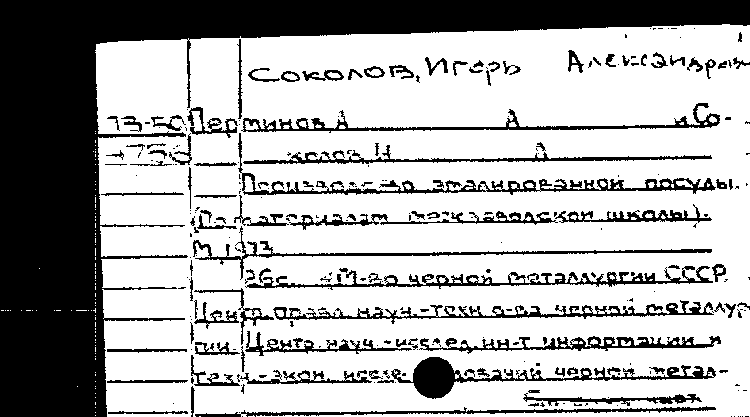 Соколов, Игорь Александрови
73-50 Перминов А А и Со-
колов, И А
Производство эмалированной посуды.
(По материалам межзаводской школы).
М, 1973
26с. (М-во черной металлургии СССР.
Центр. правл. науч.-техн о-ва черной металлур
гии. Центр. науч.-исслед. ин-т информации и
техн.-экон. иссле-дований черной метал-